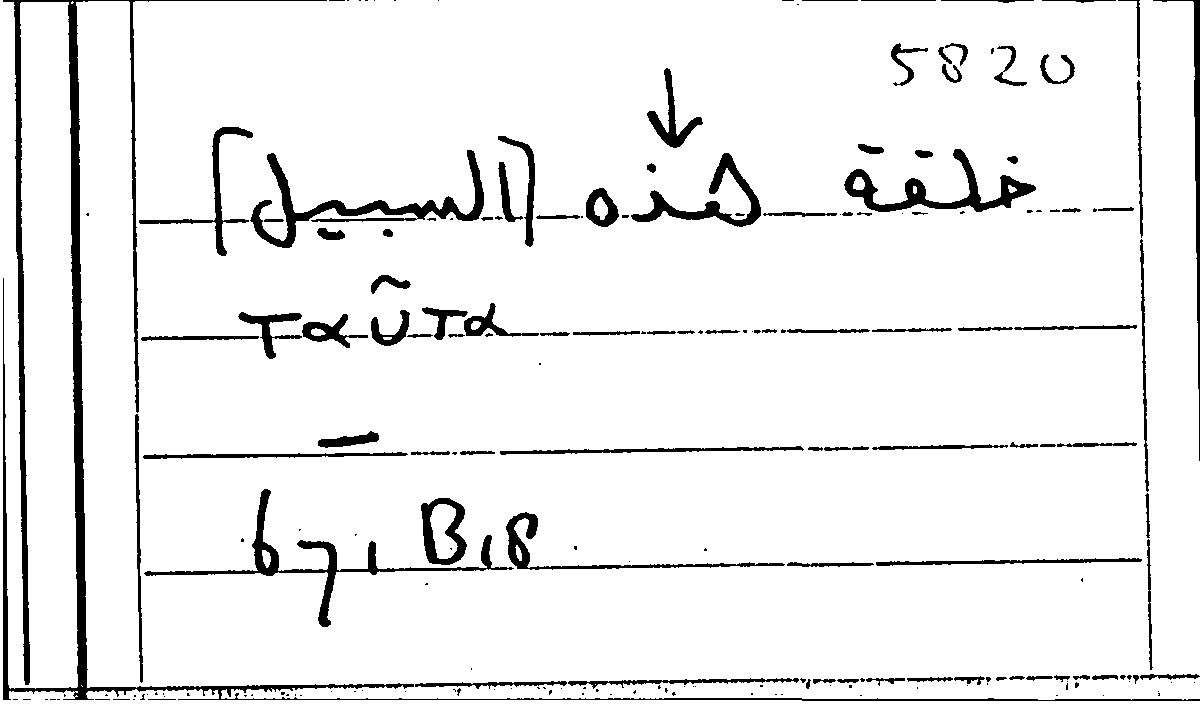 5820
↓
خلقة هذه [السبيل]
ταῦτα
–
67, B, 8